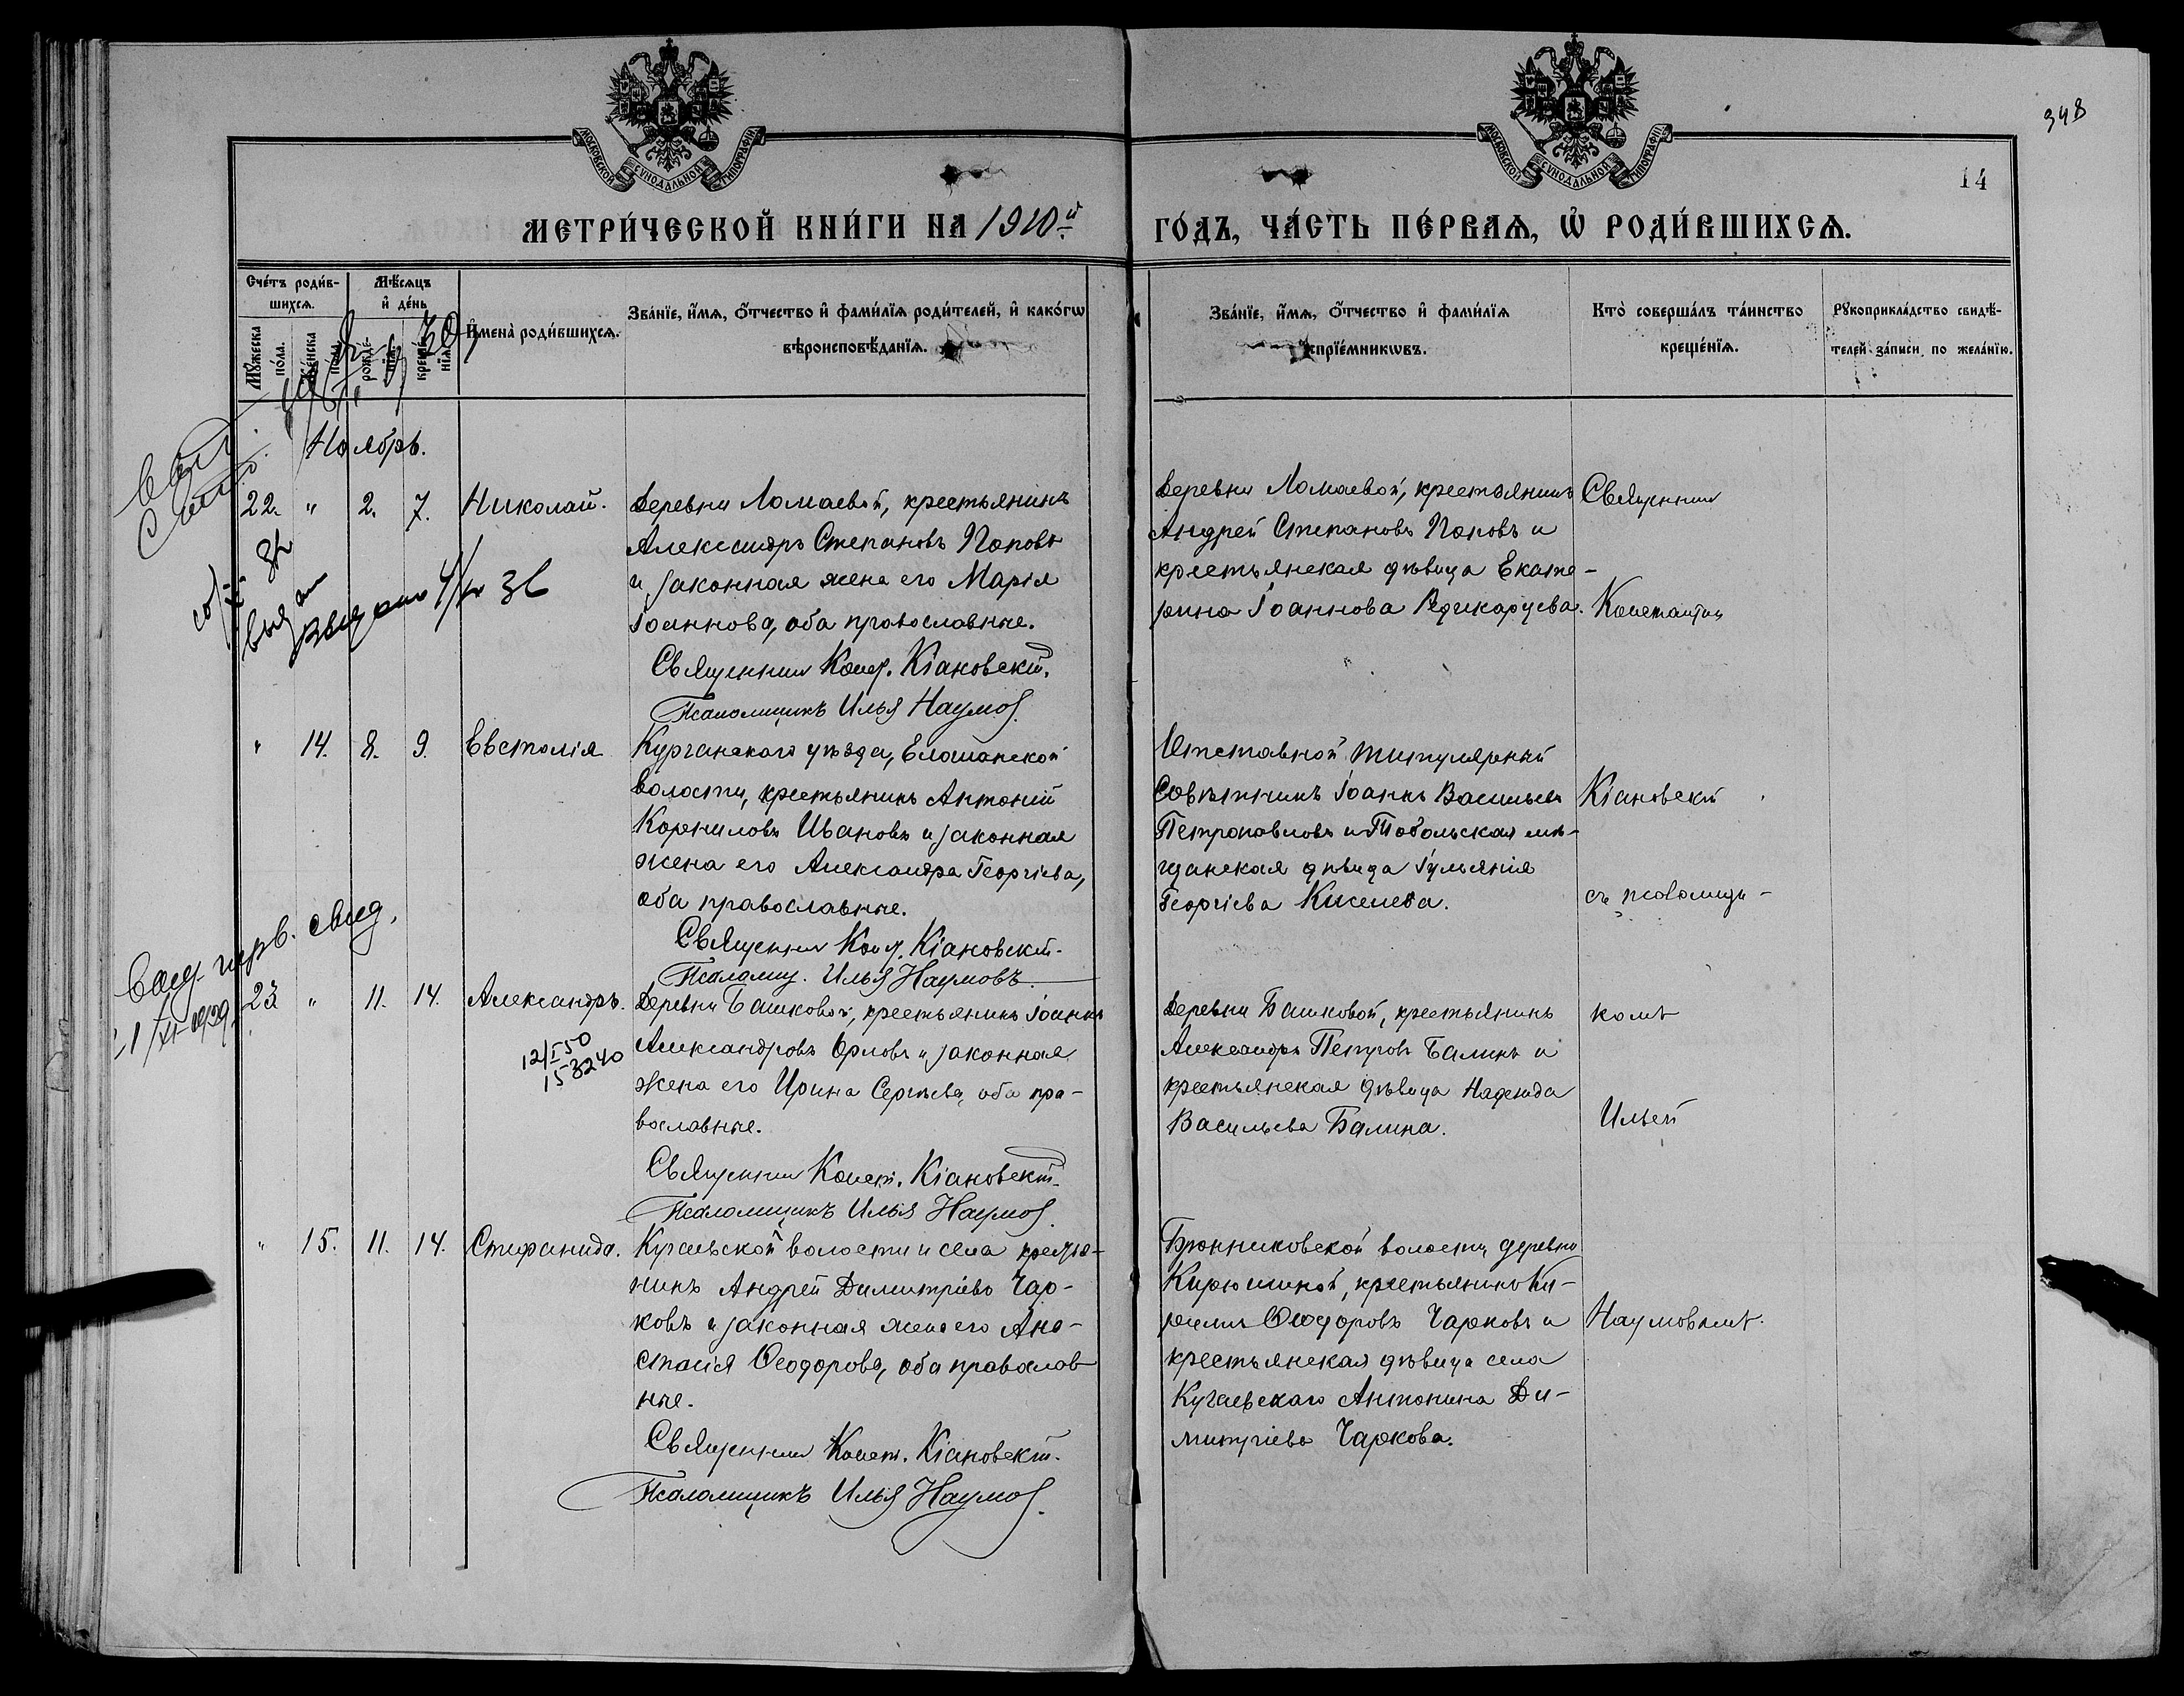 348
14
МОСКОВСКОЙ СУНОДАЛЬНОЙ ТИПОГРАФІИ
МОСКОВСКОЙ СУНОДАЛЬНОЙ ТИПОГРАФІИ
МЕТРИ́ЧЕСКОЙ КНИ́ГИ НА 1910й ГО́ДЪ, ЧА́СТЬ ПЕ́РВАѦ, Ѡ҆ РОДИ́ВШИХСѦ.
Сче́тъ роди́в-
шихсѧ.
Мꙋ́жеска по́ла.
Же́нска по́ла.
Мѣ́сѧцъ
и҆ де́нь
рожде́-
нїѧ.
креще́-
нїѧ.
И҆мена̀ роди́вшихсѧ.
Зва́нїе, и҆́мѧ, ѻ҆́тчество и҆ фами́лїѧ роди́телей, и҆ како́гѡ
вѣроисповѣ́данїѧ.
Зва́нїе, и҆́мѧ, ѻ҆́тчество и҆ фами́лїѧ
воспрїе́мникѡвъ.
Кто̀ соверша́лъ та́инство
креще́нїѧ.
Рꙋкоприкла́дство свидѣ́-
телей за́писи по жела́нїю.
Ноябрь.
22. " 2. 7. Николай.
Деревни Ломаевой, крестьянинъ
Александръ Степановъ Поповъ
и законная жена его Марія
Іоаннова, оба православные.
Священник Конст. Кіановскій.
Псаломщикъ Илья Наумов
Деревни Ломаевой, крестьянинъ
Андрей Степановъ Поповъ и
крестьянская дѣвица Екате-
рина Іоаннова
Священник
Константин
" 14. 8. 9. Евстолія
Курганскаго уѣзда, Елошанской
волости, крестьянинъ Антоній
Корниловъ Ивановъ и законная
жена его Александра Георгіева,
оба православные.
Священник Конст. Кіановскій.
Псаломщ. Илья Наумовъ.
Отставной титулярный
совѣтникъ Іоаннъ Васильевъ
Петропавловъ и Тобольская мѣ-
щанская дѣвица Іуліанія
Георгіева Киселева.
Кіановскій
съ псаломщи-
Выд. перв. свид.
23. " 11. 14. Александръ.
12/I 50
153240
Деревни Башковой, крестьянинъ Іоаннъ
Александровъ Орловъ и законная
жена его Ирина Сергѣева, оба пра-
вославные.
Священник Конст. Кіановскій.
Псаломщикъ Илья Наумов
Деревни Башковой, крестьянинъ
Александръ Петровъ Балинъ и
крестьянская дѣвица Надежда
Васильева Балина.
комъ
Ильей
" 15. 11. 14. Стефанида.
Кугаевской волости и села крестья-
нинъ Андрей Димитріевъ Чар-
ковъ и законная жена его Ана-
стасія Ѳеодорова, оба православ-
ные.
Священник Конст. Кіановскій.
Псаломщикъ Илья Наумов
Бронниковской волости, деревни
Кирюшиной, крестьянинъ Ки-
риллъ Ѳеодоровъ Чарковъ и
крестьянская дѣвица села
Кугаевскаго Антонина Ди-
митріева Чаркова.
Наумовымъ.